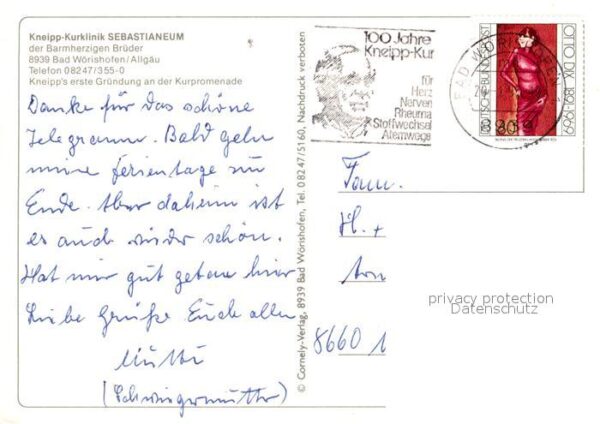 Kneipp-Kurklinik SEBASTIANEUM
der Barmherzigen Brüder
8939 Bad Wörishofen/Allgäu
Telefon 08247/355-0
Kneipp's erste Gründung an der Kurpromenade
Danke für das schöne
Telegramm. Bald gehn
meine Ferientage zu
Ende. Aber daheim ist
es auch wieder schön.
Hat mir gut getan hier
Liebe Grüße Euch allen
Mutti
(Schwiegermutter)
© Cornely-Verlag, 8939 Bad Wörishofen, Tel. 08247/5160, Nachdruck verboten
100 Jahre
Kneipp-Kur
für
Herz
Nerven
Rheuma
Stoffwechsel
Atemwege
BAD WÖRISHOFEN
DEUTSCHE BUNDESPOST
80
OTTO DIX 1891-1969
Fam.
H. +
8660
privacy protection
Datenschutz